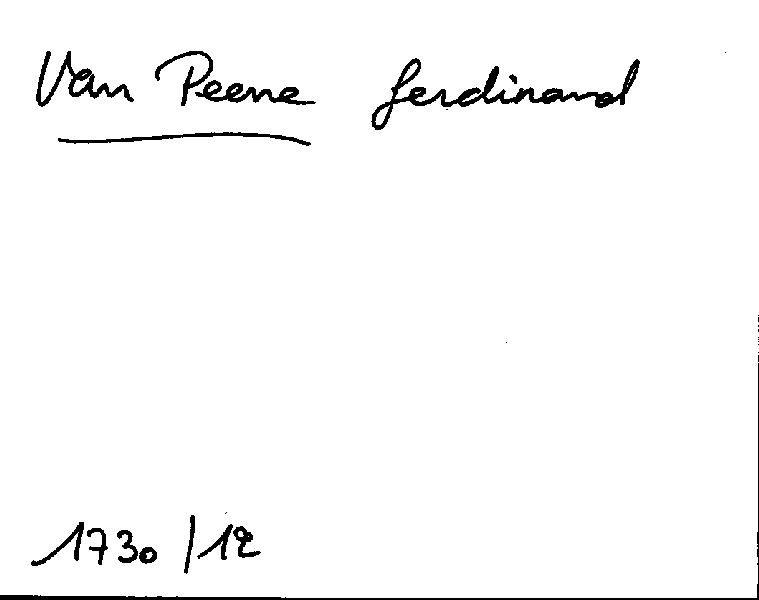 Van Peene Ferdinand
1730/12